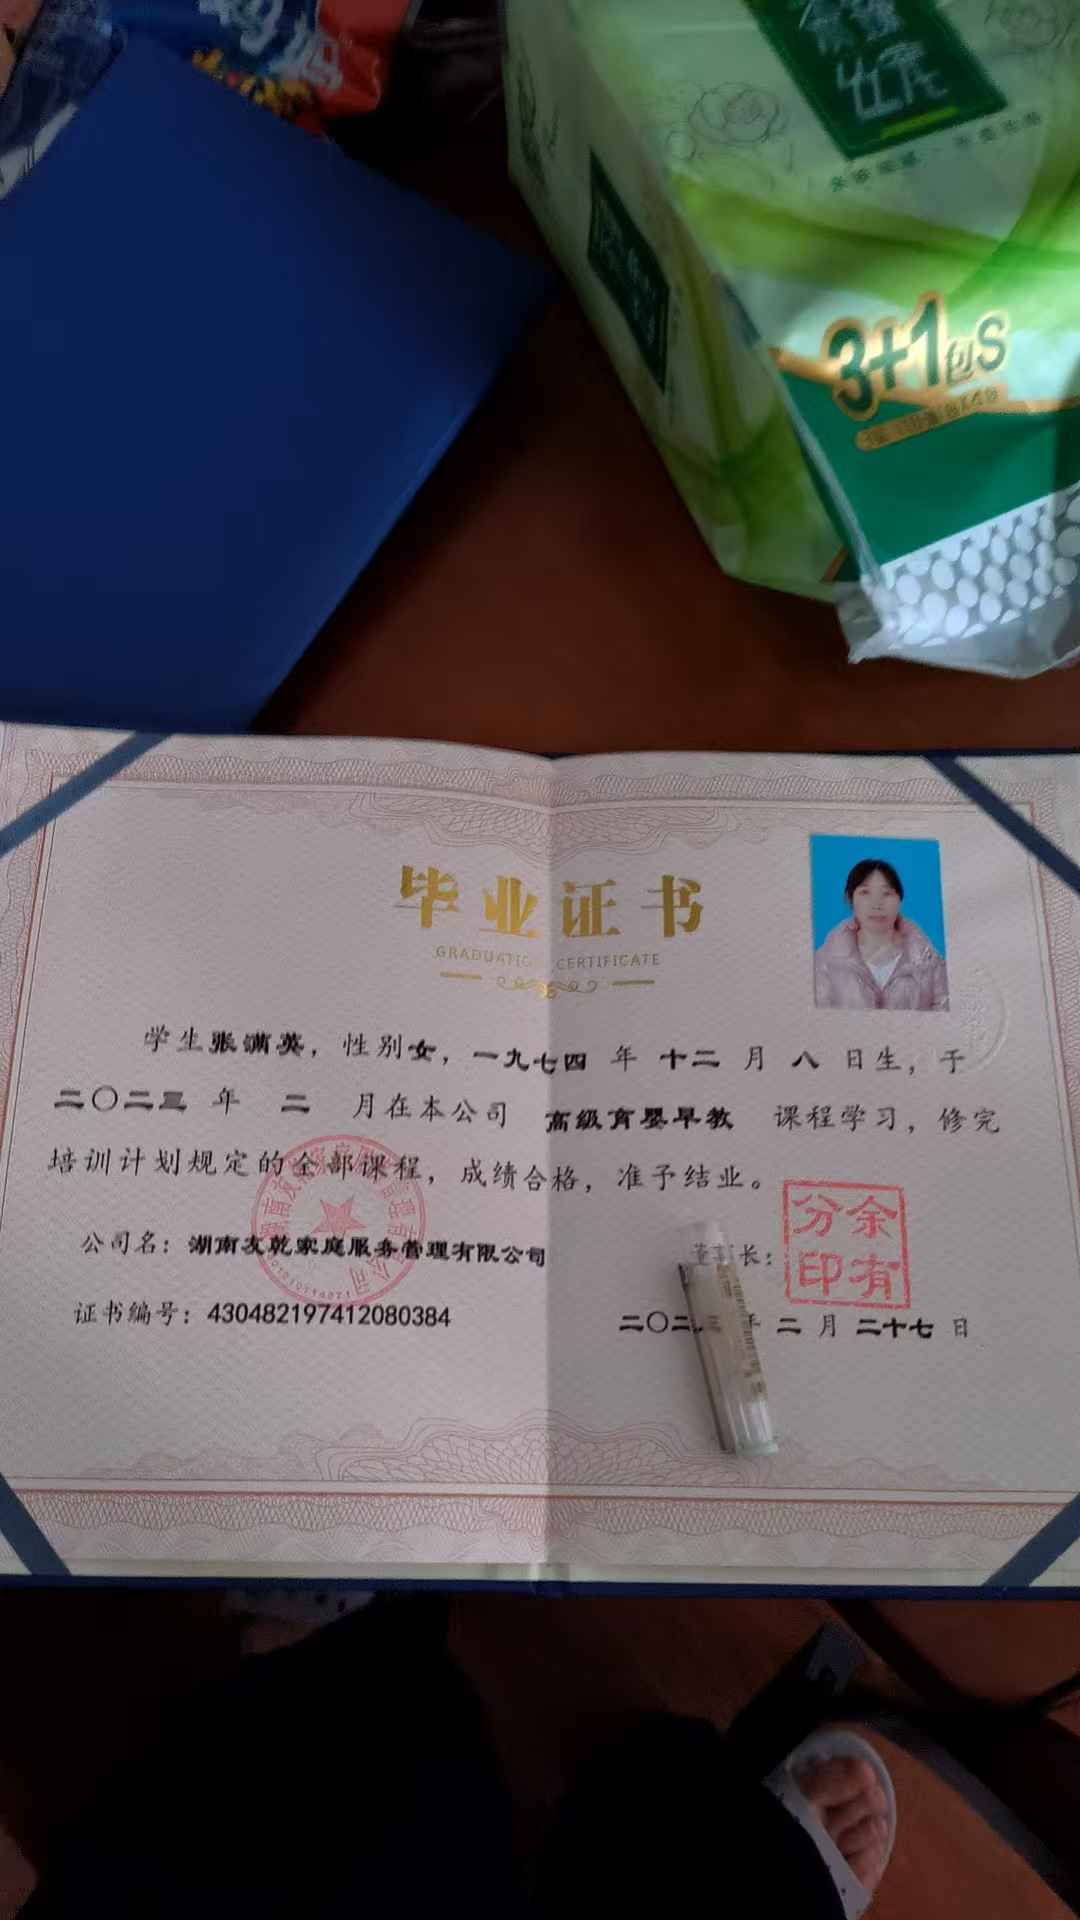 3+1包S
毕业证书
GRADUATIO CERTIFICATE
学生张满英，性别女，一九七四 年 十二 月 八 日生，于
二〇二三 年 二 月在本公司 高级育婴早教 课程学习，修完
培训计划规定的全部课程，成绩合格，准予结业。
公司名：湖南友乾家庭服务管理有限公司
长：
分余
印有
证书编号：430482197412080384
二〇二三 年 二 月 二十七 日